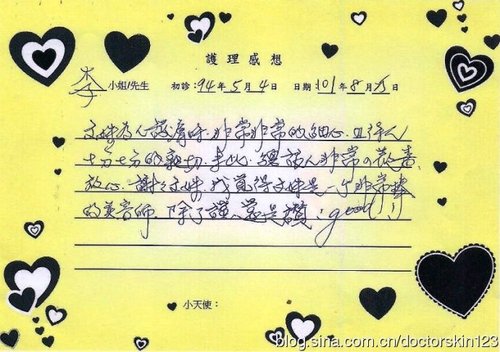 護理感想
李 小姐/先生 初診：94年5月4日 日期101年8月 日
文妹為人護膚時，非常非常的細心，且待人
十分十分的親切，讓人非常の
放心。謝謝文妹，我覺得文妹是一个非常棒
的美容師，除了讚，還是讚！good！！
小天使：
blog.sina.com.cn/doctorskin123